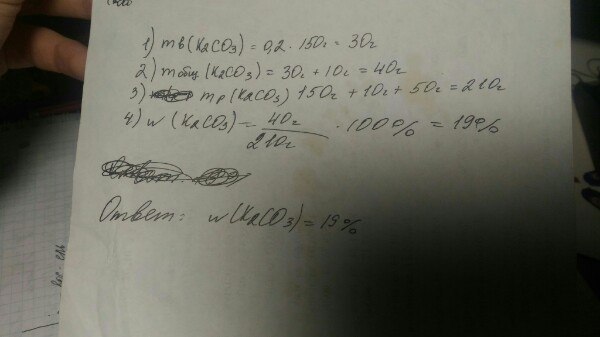 1) mв (K2CO3) = 0,2 · 150г = 30г
2) mобщ (K2CO3) = 30г + 10г = 40г
3) mр (K2CO3) 150г + 10г + 50г = 210г
4) w (K2CO3) = 40г / 210г · 100% = 19%
Ответ: w (K2CO3) = 19%